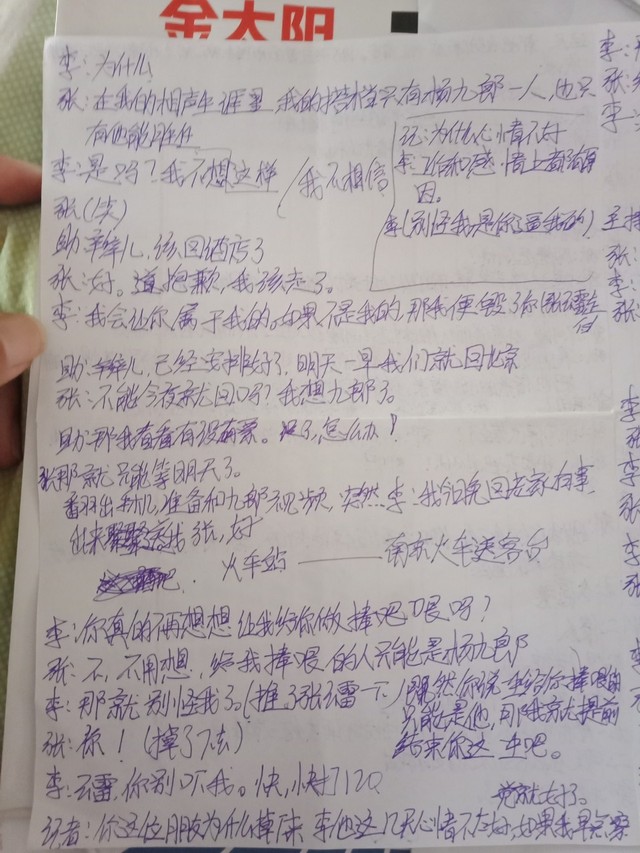 金太阳
李:为什么
张:在我的相声生涯里,我的搭档只有杨九郎一人,也只
有他能胜任
李:是吗?我不想这样(我不相信
张(笑)
助:辫儿,该回酒店了
张:好。道抱歉,我该走了。
李:我会让你属于我的。如果不是我的,那我便毁了你张云雷
记:为什么心情不好
李:工作和感情上都有原
因。
李(别怪我是你逼我的)
助:辫儿,已经安排好了,明天一早我们就回北京
张:不能今夜就回吗?我想九郎了。
助:那我查查有没有票。没了,怎么办!
张那就只能等明天了。
翻出手机,准备和九郎视频,突然 李:我今晚回老家有事,
出来 张,好
火车站——南京火车送客台
李:你真的不再想想让我给你做捧哏吗?
张:不,不用想,给我捧哏的人只能是杨九郎
李:那就别怪我了。(推了张云雷一下)(既然你说一生给你捧哏的
只能是他,那我就提前
结束你这一生吧。
张:你!(掉了下去)
李:云雷,你别吓我。快,快打120
就好了。
记者:你这位朋友为什么掉下来 李他这几天心情不太好,如果我早点察
主持
李:
张:
李:
张:
李:
张: